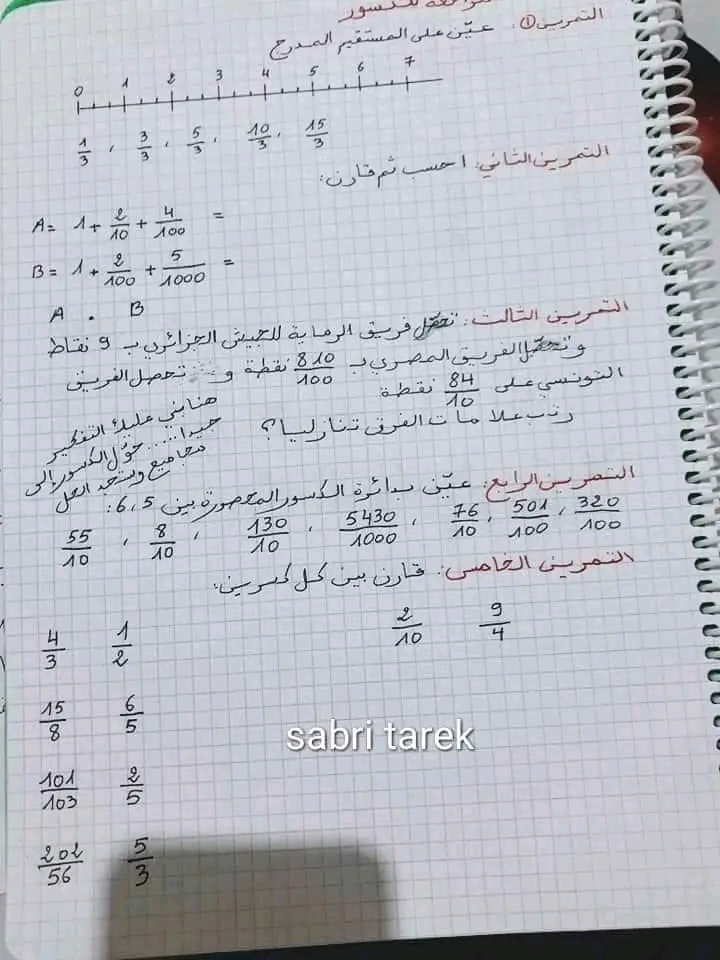 للكسور
التمرين ①: عيّن على المستقيم المدرج
0 1 2 3 4 5 6 7
1/3 , 3/3 , 5/3 , 10/3 , 15/3
التمرين الثاني: احسب ثم قارن:
A = 1 + 2/10 + 4/100 =
B = 1 + 2/100 + 5/1000 =
A . B
التمرين الثالث: تحصّل فريق الرماية للجيش الجزائري ب 9 نقاط
وتحصّل الفريق المصري ب 810/100 نقطة و تحصل الفريق
التونسي على 84/10 نقطة
رتب علامات الفرق تنازليا؟
هنا بني عليك التفكير
جيدا.... حوّل الكسور إلى
مجاميع وستجد الحل
التمرين الرابع: عيّن بدائرة الكسور المحصورة بين 5 ، 6:
55/10 , 8/10 , 130/10 , 5430/1000 , 76/10 , 501/100 , 320/100
التمرين الخامس: قارن بين كل كسرين:
4/3 1/2 2/10 9/4
15/8 6/5
sabri tarek
101/103 2/5
202/56 5/3